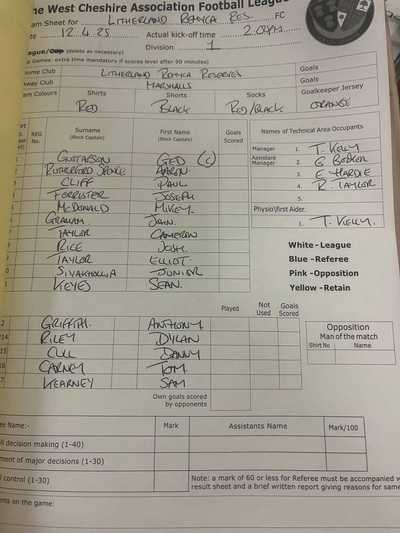 he West Cheshire Association Football Leag
am Sheet for LITHERLAND REMYCA RES. FC
te 12.4.25 Actual kick-off time 2.00PM.
eague/Cup (delete as necessary) Division 1
p Games: extra time mandatory if scores level after 90 minutes)
ome Club LITHERLAND REMYCA RESERVES Goals
way Club MARSHALLS Goals
am Colours Shirts Shorts Socks Goalkeeper Jersey
RED BLACK RED/BLACK ORANGE
REG No. Surname (Block Capitals) First Name (Block Capitals) Goals Scored Names of Technical Area Occupants
GUSTAFSON GED (C) Manager 1. T. KELLY
RUTHERFORD AARON Assistant Manager 2. G
CLIFF PAUL 3. E HARDIE
FORRESTER JOSEPH 4. R. TAYLOR
MCDONALD MIKEY. 5.
GRAHAM JOHN. Physio\first Aider.
TAYLOR CAMERON 1. T. KELLY.
RICE JOSH.
White - League
TAYLOR ELLIOT.
Blue - Referee
JUNIOR
Pink - Opposition
KEYES SEAN.
Yellow - Retain
Played Not Used Goals Scored
2 GRIFFITH. ANTHONY
Opposition
Man of the match
14 RILEY DYLAN
Shirt No Name
15 CULL DANNY
16 CARNEY TOM
7 KEARNEY SAM
Own goals scored by opponents
ee Name:- Mark Assistants Name Mark/100
ll decision making (1-40)
ment of major decisions (1-30)
l control (1-30) Note: a mark of 60 or less for Referee must be accompanied w
result sheet and a brief written report giving reasons for same
nts on the game: